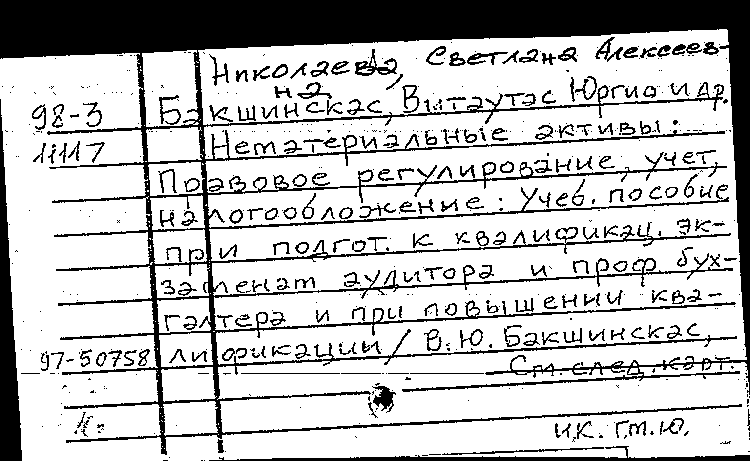 Николаева, Светлана Алексеев-
на
98-3 Бакшинскас, Витаутас Юргио и др.
11117 Нематериальные активы:
Правовое регулирование, учет,
налогообложение: Учеб. пособие
при подгот. к квалификац. эк-
заменам аудитора и проф бух-
галтера и при повышении ква-
97-50758 лификации / В.Ю. Бакшинскас,
См. след. карт.
И.К. Г.М.Ю.